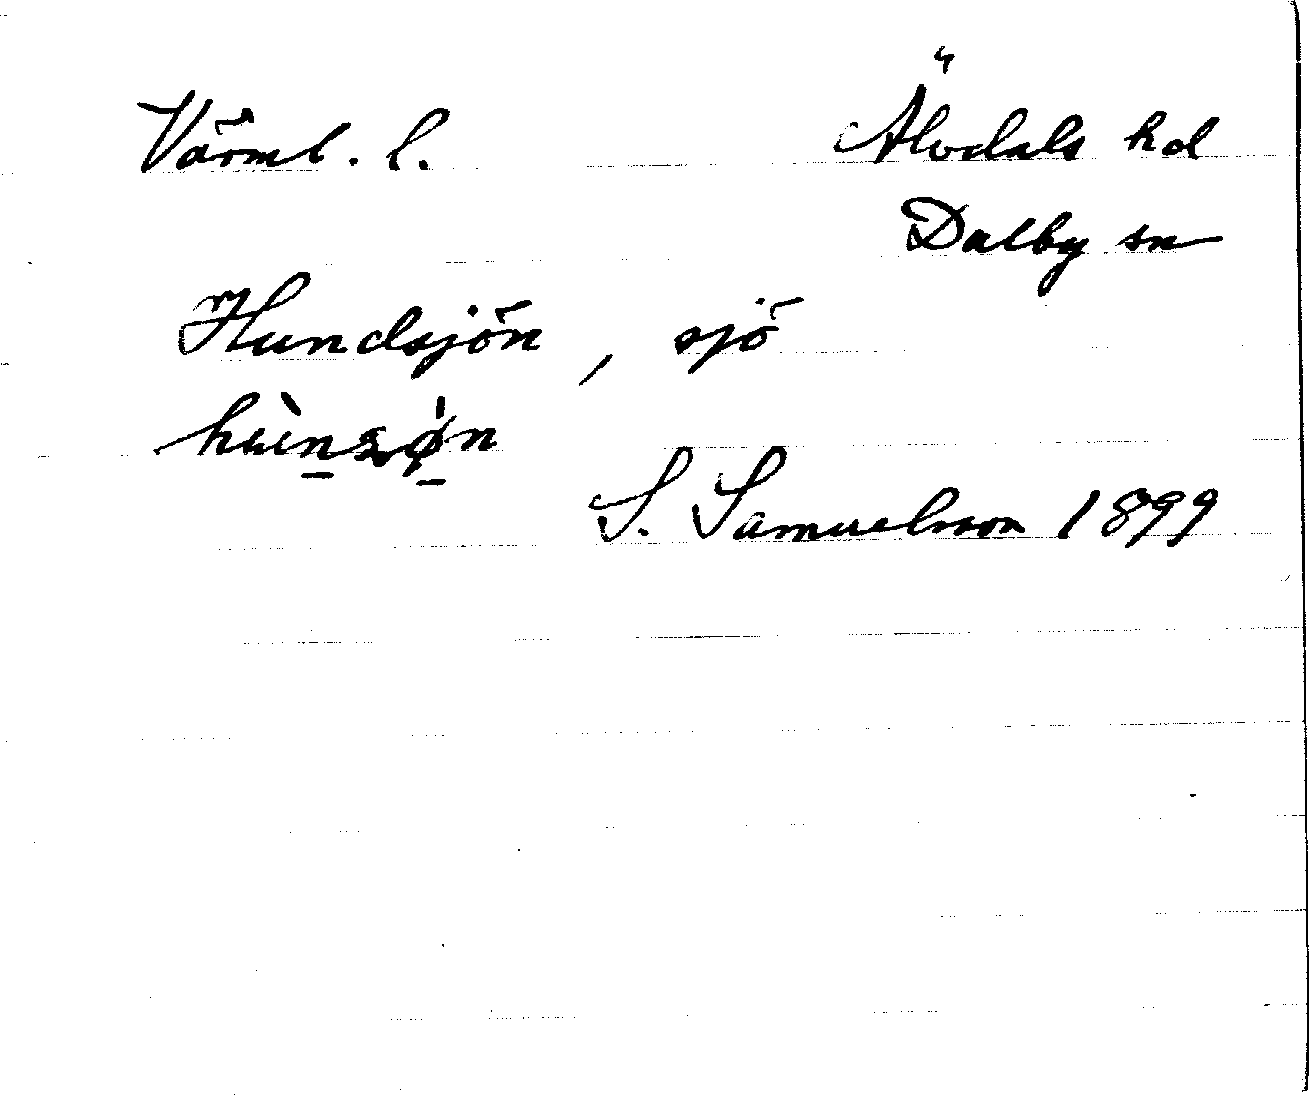 Värml. l. Älvdals hd
Dalby sn
Hundsjön, sjö
S. Samuelsson 1899